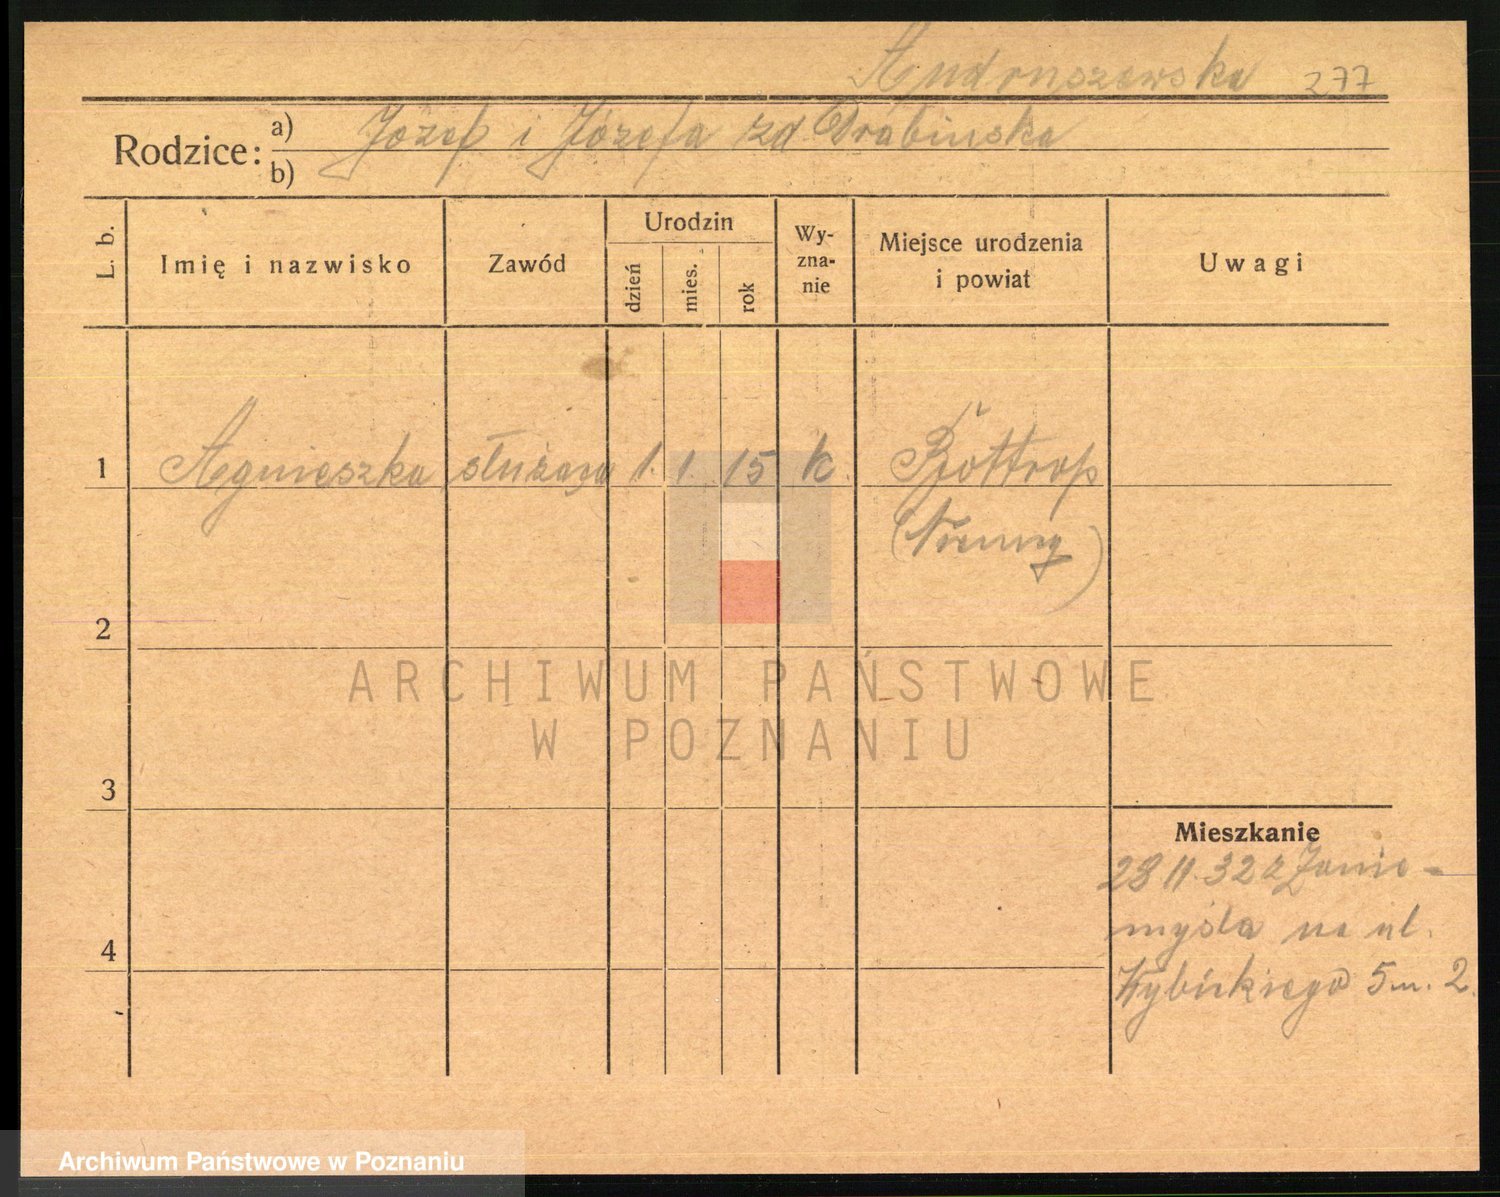 Andruszewska 277
Rodzice:
a) Józef i Józefa zd Drabińska
b)
L. b.
Imię i nazwisko
Zawód
Urodzin
dzień
mies.
rok
Wy-
zna-
nie
Miejsce urodzenia
i powiat
Uwagi
1 Agnieszka służąca 1. 1. 15 k. Bottrop
(Niemcy)
2
3
4
ARCHIWUM PAŃSTWOWE
W POZNANIU
Mieszkanie
28 11. 32 z Zanie-
myśla na ul.
Wybickiego 5 m. 2.
Archiwum Państwowe w Poznaniu